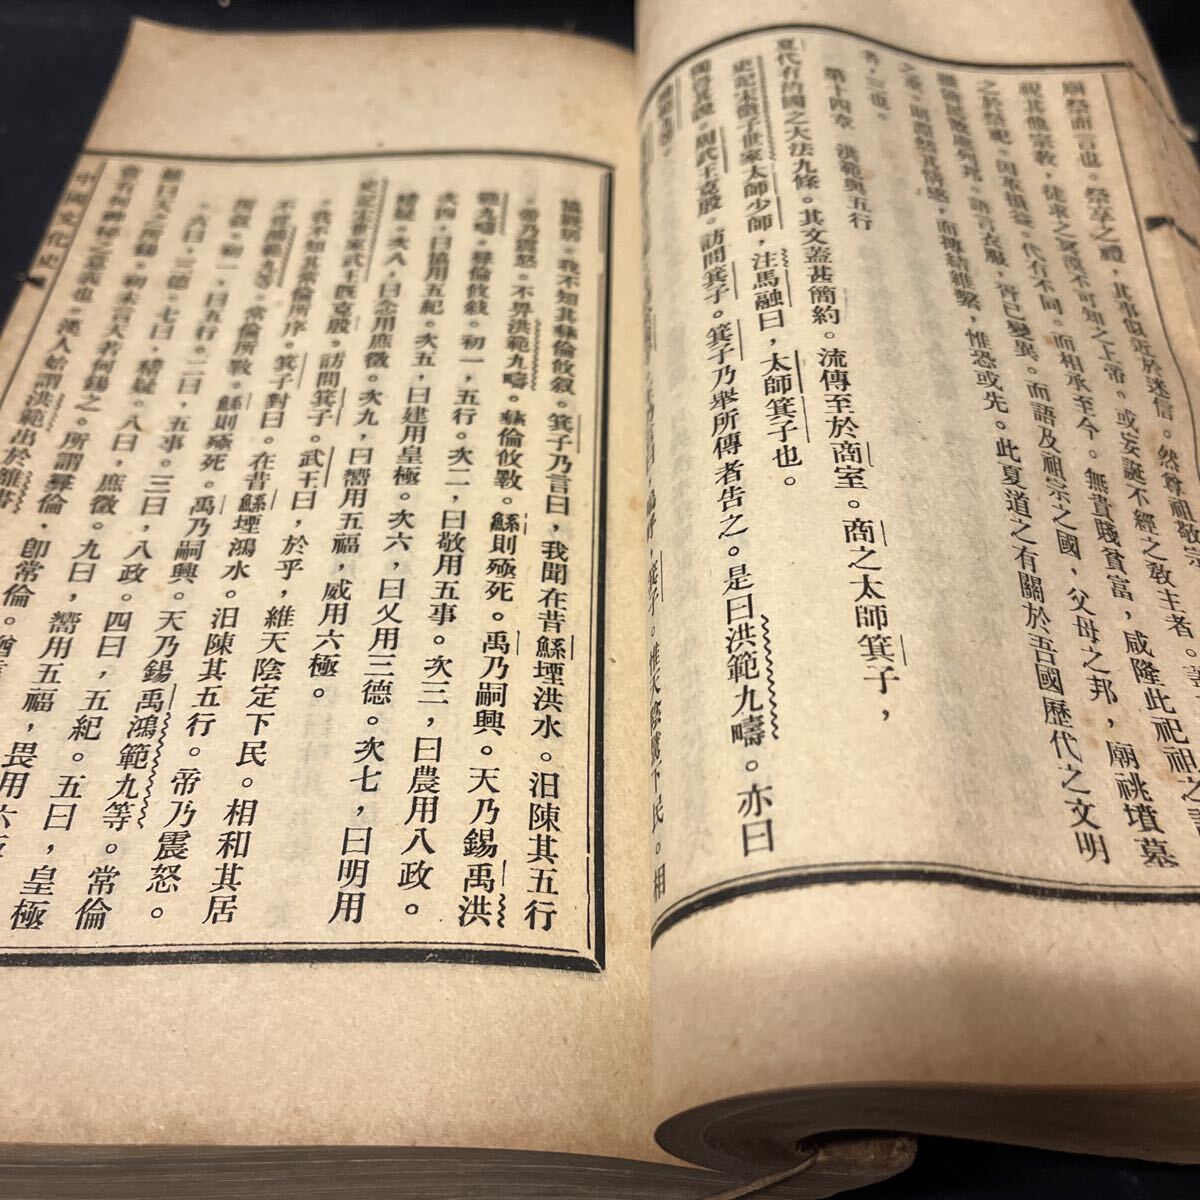 廟祭而言也。祭享之禮，其事似近於迷信。然尊祖敬宗
視其他宗教，徒求之冥漠不可知之上帝。或妄誕不經之敎主者。
之於祭祀。因革損益。代有不同。而相承至今。無貴賤貧富，咸隆此祀祖之
語言衣服，胥已變異。而語及祖宗之國，父母之邦，廟祧墳墓
之重。則淵然其情感，而摶結維繫，惟恐或先。此夏道之有關於吾國歷代之文明
者，三也。
第十四章　洪範與五行
夏代有治國之大法九條。其文蓋甚簡約。流傳至於商室。商之太師箕子，
史記宋微子世家太師少師，注馬融曰，太師箕子也。
獨得其說。周武王克殷。訪問箕子。箕子乃舉所傳者告之。是曰洪範九疇。亦曰
箕子。惟天陰騭下民。相
協厥居。我不知其彝倫攸敘。箕子乃言曰，我聞在昔鯀堙洪水。汩陳其五行
。帝乃震怒。不畀洪範九疇。彝倫攸斁。鯀則殛死。禹乃嗣興。天乃錫禹洪
範九疇。彝倫攸敍。初一，五行。次二，曰敬用五事。次三，曰農用八政。
次四，曰協用五紀。次五，曰建用皇極。次六，曰乂用三德。次七，曰明用
稽疑。次八，曰念用庶徵。次九，曰嚮用五福，威用六極。
史記宋世家武王旣克殷。訪問箕子。武王曰，於乎，維天陰定下民。相和其居
。我不知其常倫所序。箕子對曰。在昔鯀堙鴻水。汩陳其五行。帝乃震怒。
不從鴻範九等。常倫所斁。鯀則殛死。禹乃嗣興。天乃錫禹鴻範九等。常倫
所敘。初一，曰五行。二曰，五事。三曰，八政。四曰，五紀。五曰，皇極
。六曰，三德。七曰，稽疑。八曰，庶徵。九曰，嚮用五福，畏用六極
細曰天之所錫。初未言天若何錫之。所謂彝倫，卽常倫。
嘗有何神祕之意義也。漢人始謂洪範出於雒書
中國文化史